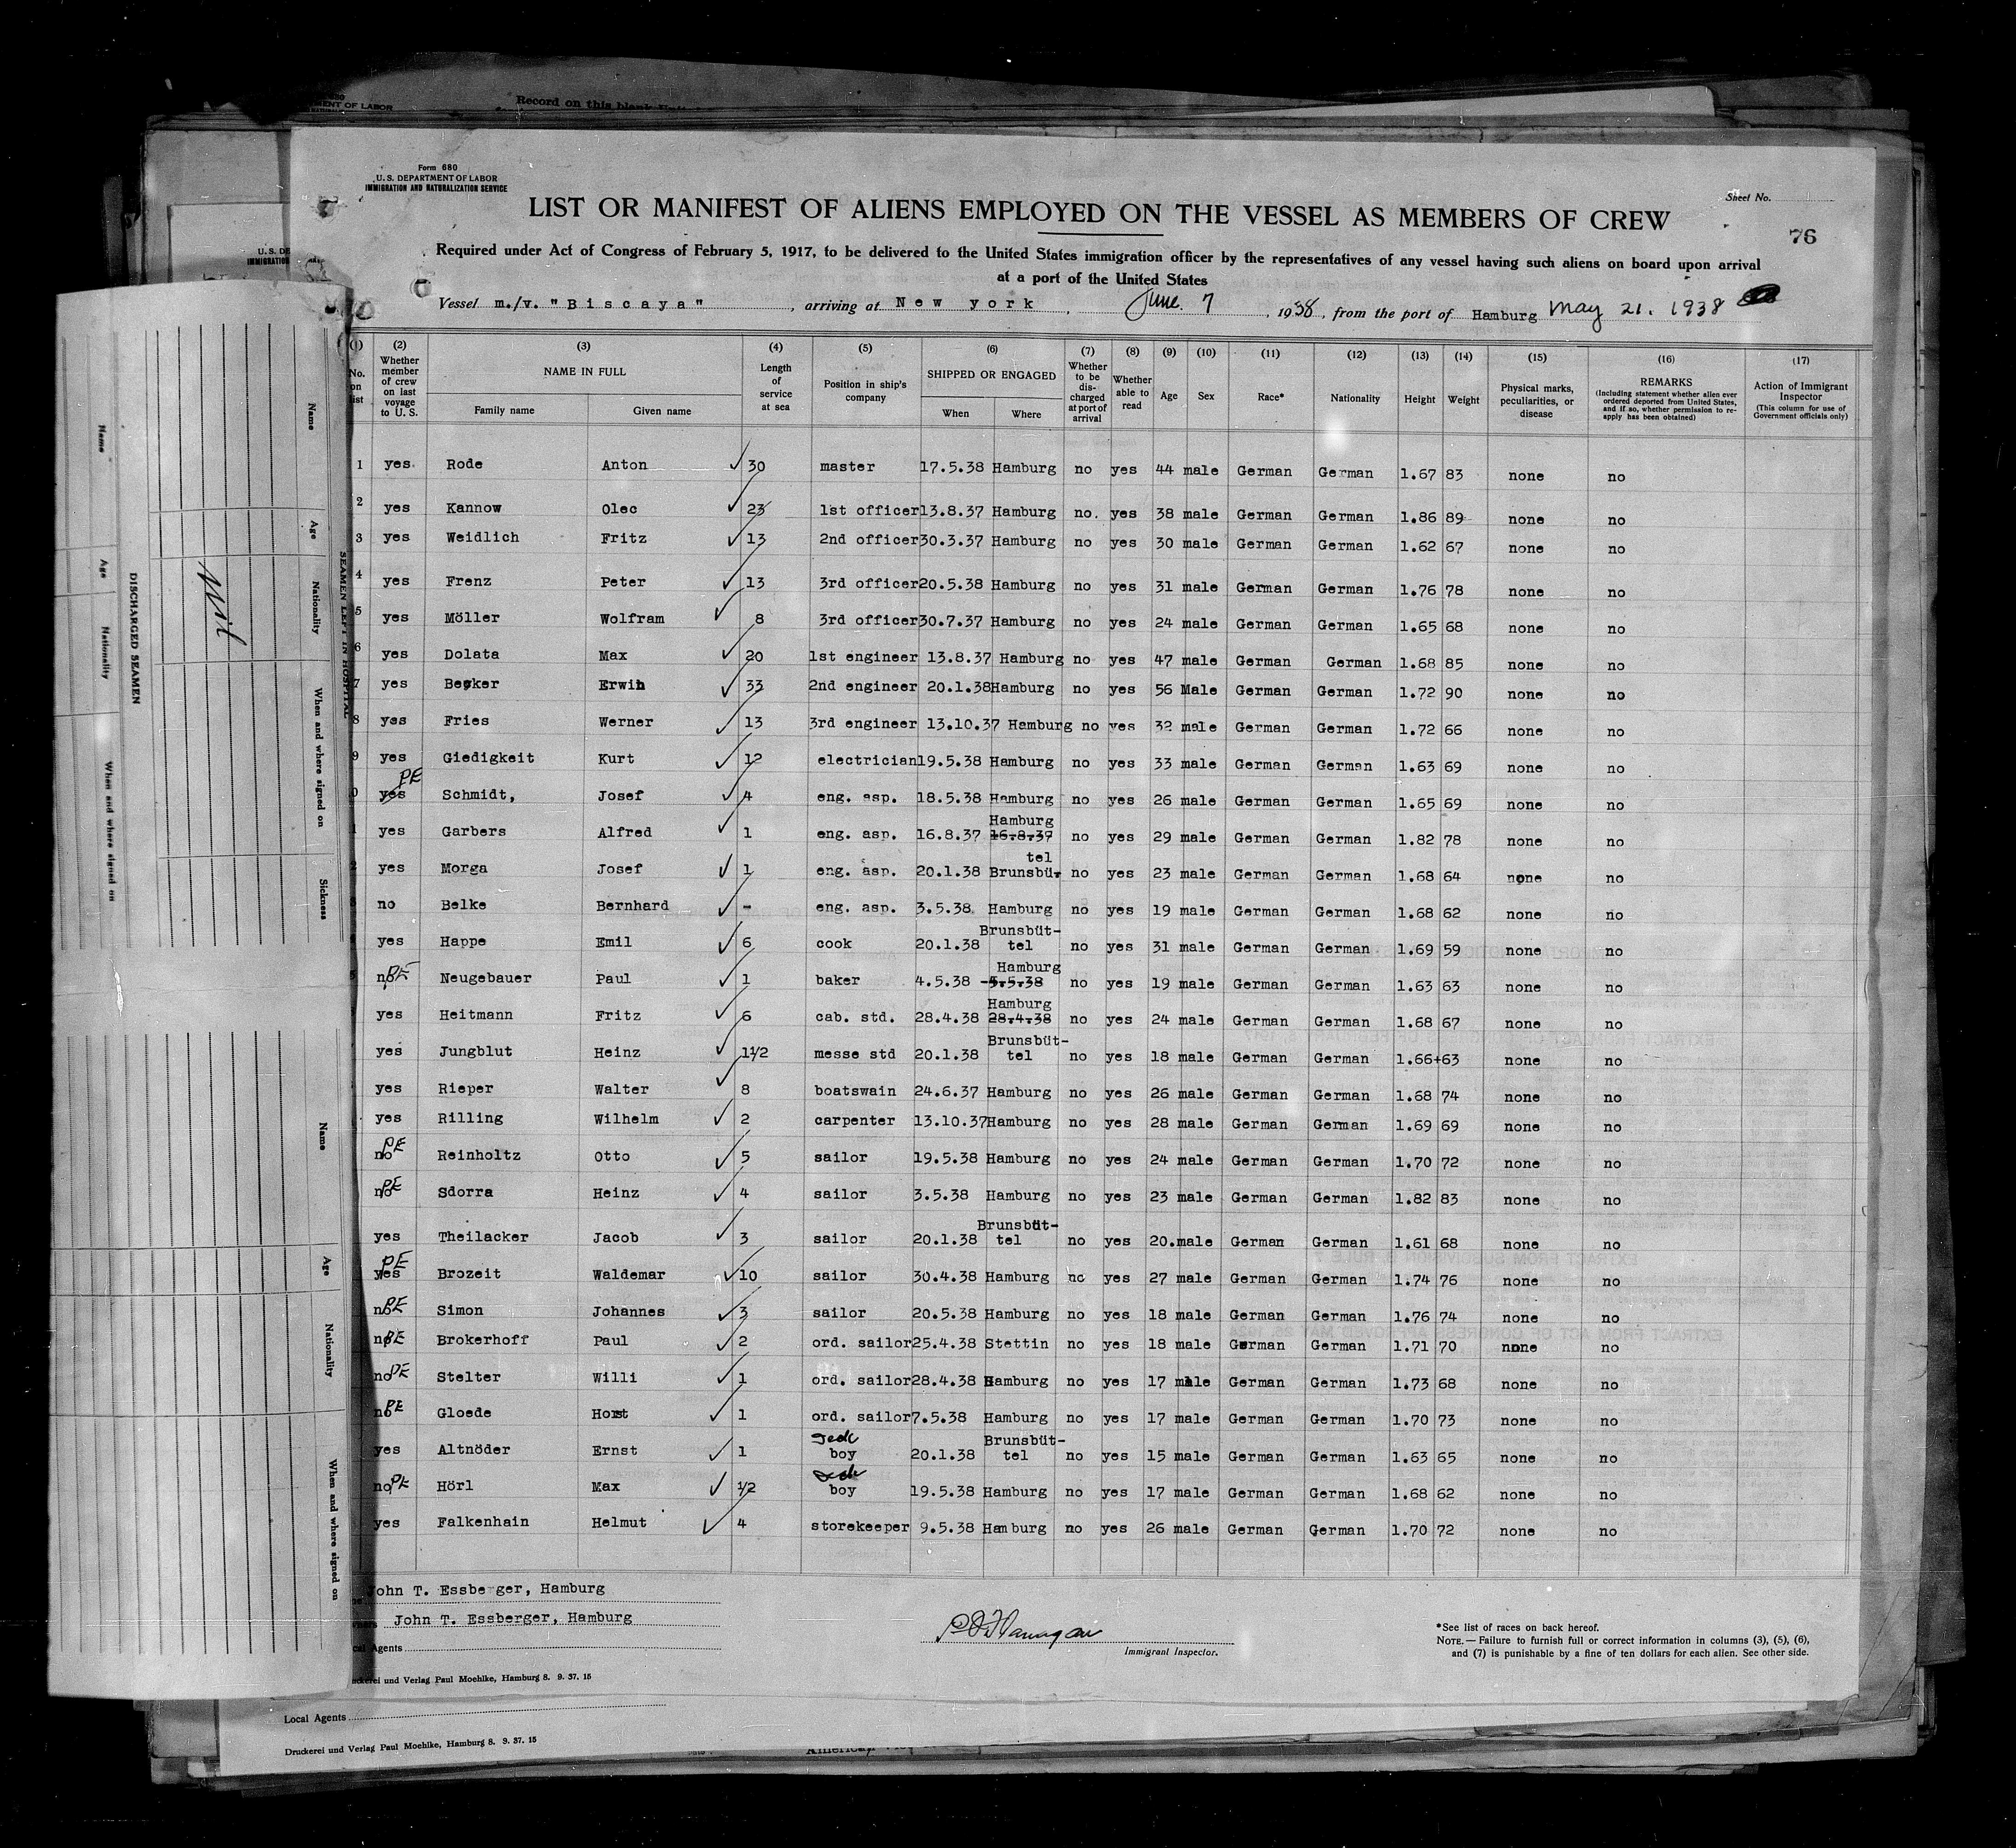 Record on this blank
Form 680
U. S. DEPARTMENT OF LABOR
IMMIGRATION AND NATURALIZATION SERVICE
Sheet No. 1
LIST OR MANIFEST OF ALIENS EMPLOYED ON THE VESSEL AS MEMBERS OF CREW
76
Required under Act of Congress of February 5, 1917, to be delivered to the United States immigration officer by the representatives of any vessel having such aliens on board upon arrival
at a port of the United States
Vessel m./v. "Biscaya", arriving at New york, June. 7, 1938, from the port of Hamburg May 21. 1938
(1) No. on list (2) Whether member of crew on last voyage to U. S. (3) NAME IN FULL Family name Given name (4) Length of service at sea (5) Position in ship's company (6) SHIPPED OR ENGAGED When Where (7) Whether to be discharged at port of arrival (8) Whether able to read (9) Age (10) Sex (11) Race* (12) Nationality (13) Height (14) Weight (15) Physical marks, peculiarities, or disease (16) REMARKS (Including statement whether alien ever ordered deported from United States, and if so, whether permission to reapply has been obtained) (17) Action of Immigrant Inspector (This column for use of Government officials only)
1 yes Rode Anton 30 master 17.5.38 Hamburg no yes 44 male German German 1.67 83 none no
2 yes Kannow Olec 23 1st officer 13.8.37 Hamburg no. yes 38 male German German 1.86 89 none no
3 yes Weidlich Fritz 13 2nd officer 30.3.37 Hamburg no yes 30 male German German 1.62 67 none no
4 yes Frenz Peter 13 3rd officer 20.5.38 Hamburg no yes 31 male German German 1.76 78 none no
5 yes Möller Wolfram 8 3rd officer 30.7.37 Hamburg no yes 24 male German German 1.65 68 none no
6 yes Dolata Max 20 1st engineer 13.8.37 Hamburg no yes 47 male German German 1.68 85 none no
7 yes Becker Erwin 33 2nd engineer 20.1.38 Hamburg no yes 56 Male German German 1.72 90 none no
8 yes Fries Werner 13 3rd engineer 13.10.37 Hamburg no yes 32 male German German 1.72 66 none no
9 yes Giedigkeit Kurt 12 electrician 19.5.38 Hamburg no yes 33 male German German 1.63 69 none no
0 yes PE Schmidt, Josef 4 eng. asp. 18.5.38 Hamburg no yes 26 male German German 1.65 69 none no
1 yes Garbers Alfred 1 eng. asp. 16.8.37 Hamburg 16.8.37 no yes 29 male German German 1.82 78 none no
2 yes Morga Josef 1 eng. asp. 20.1.38 Brunsbüttel no yes 23 male German German 1.68 64 none no
3 no Belke Bernhard - eng. asp. 3.5.38 Hamburg no yes 19 male German German 1.68 62 none no
yes Happe Emil 6 cook 20.1.38 Brunsbüt-tel no yes 31 male German German 1.69 59 none no
5 no PE Neugebauer Paul 1 baker 4.5.38 Hamburg -5.5.38 no yes 19 male German German 1.63 63 none no
yes Heitmann Fritz 6 cab. std. 28.4.38 Hamburg 28.4.38 no yes 24 male German German 1.68 67 none no
yes Jungblut Heinz 1 1/2 messe std 20.1.38 Brunsbüt-tel no yes 18 male German German 1.66+63 none no
yes Rieper Walter 8 boatswain 24.6.37 Hamburg no yes 26 male German German 1.68 74 none no
yes Rilling Wilhelm 2 carpenter 13.10.37 Hamburg no yes 28 male German German 1.69 69 none no
no PE Reinholtz Otto 5 sailor 19.5.38 Hamburg no yes 24 male German German 1.70 72 none no
no PE Sdorra Heinz 4 sailor 3.5.38 Hamburg no yes 23 male German German 1.82 83 none no
yes Theilacker Jacob 3 sailor 20.1.38 Brunsbüt-tel no yes 20. male German German 1.61 68 none no
yes PE Brozeit Waldemar 10 sailor 30.4.38 Hamburg no yes 27 male German German 1.74 76 none no
no PE Simon Johannes 3 sailor 20.5.38 Hamburg no yes 18 male German German 1.76 74 none no
no PE Brokerhoff Paul 2 ord. sailor 25.4.38 Stettin no yes 18 male German German 1.71 70 none no
no PE Stelter Willi 1 ord. sailor 28.4.38 Hamburg no yes 17 male German German 1.73 68 none no
no PE Gloede Horst 1 ord. sailor 7.5.38 Hamburg no yes 17 male German German 1.70 73 none no
yes Altnöder Ernst 1 deck boy 20.1.38 Brunsbüt-tel no yes 15 male German German 1.63 65 none no
no PE Hörl Max 1/2 deck boy 19.5.38 Hamburg no yes 17 male German German 1.68 62 none no
yes Falkenhain Helmut 4 storekeeper 9.5.38 Hamburg no yes 26 male German German 1.70 72 none no
John T. Essberger, Hamburg
John T. Essberger, Hamburg
Agents
Immigrant Inspector.
*See list of races on back hereof.
NOTE.—Failure to furnish full or correct information in columns (3), (5), (6),
and (7) is punishable by a fine of ten dollars for each alien. See other side.
und Verlag Paul Moehlke, Hamburg 8. 9. 37. 15
Local Agents
Druckerei und Verlag Paul Moehlke, Hamburg 8. 9. 37. 15
SEAMEN LEFT IN HOSPITAL
Name Age Nationality When and where signed on Sickness
Nil
DISCHARGED SEAMEN
Name Age Nationality When and where signed on
Name Age Nationality When and where signed on